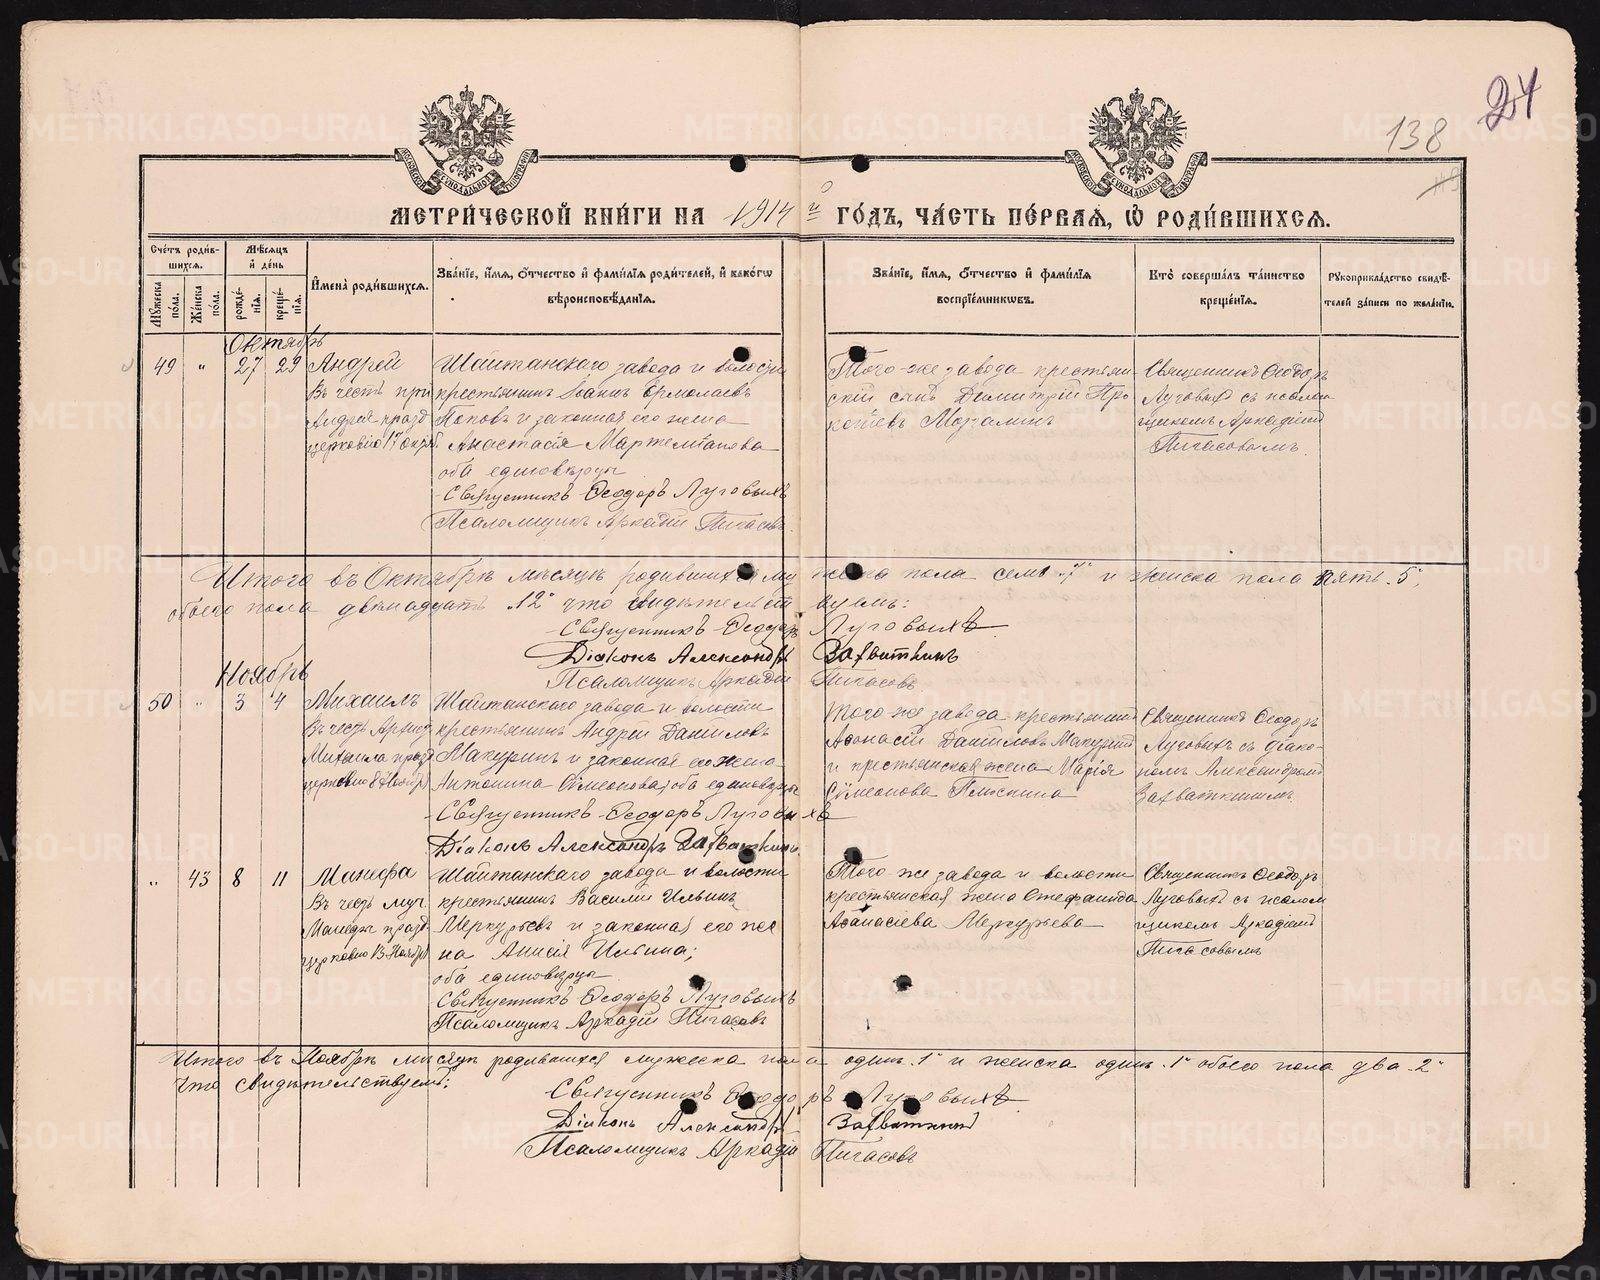 24
138
МОСКОВСКОЙ СѴНОДАЛЬНОЙ ТИПОГРАФІИ
МОСКОВСКОЙ СѴНОДАЛЬНОЙ ТИПОГРАФІИ
МЕТРИ́ЧЕСКОЙ КНИ́ГИ НА 1914 й ГО́ДЪ, ЧА́СТЬ ПЕ́РВАЯ, Ѡ҆ РОДИ́ВШИХСЯ.
Сче́тъ роди́вшихся.
Мѣ́сяцъ и҆ де́нь
Му́жеска по́ла.
Же́нска по́ла.
рожде́нія.
креще́нія.
И҆мена̀ роди́вшихся.
Зва́ніе, и҆́мя, ѻ҆́тчество и҆ фами́лія роди́телей, и҆ како́гѡ вѣроисповѣ́данія.
Зва́ніе, и҆́мя, ѻ҆́тчество и҆ фами́лія воспріе́мникѡвъ.
Кто̀ соверша́лъ та́инство креще́нія.
Рꙋкоприкла́дство свидѣ́телей за́писи по жела́нію.
Октябрь
49 " 27 29 Андрей
Въ честь при
Андрея празд
церковію 17 окт
Шайтанскаго завода и волости
крестьянинъ Іоаннъ Ермолаевъ
Поповъ и законная его жена
Анастасія Мартемьянова
оба единовѣрцы
Священникъ Ѳеодоръ Луговыхъ
Псаломщикъ Аркадій Пигасовъ.
Того-же завода крестьян
скій сынъ Димитрій Про
копіевъ
Священникъ Ѳеодоръ
Луговыхъ съ псалом
щикомъ Аркадіемъ
Пигасовымъ.
Итого въ Октябрѣ мѣсяцѣ родившихся мужеска пола семь „7" и женска пола пять „5",
обоего пола двѣнадцать „12" что свидѣтельствуемъ:
Священникъ Ѳеодоръ Луговыхъ
Діаконъ Александръ Захваткинъ
Псаломщикъ Аркадій Пигасовъ
Ноябрь
50 " 3 4 Михаилъ
Въ честь Архис
Михаила празд
церковію 8 Ноября
Шайтанскаго завода и волости
крестьянинъ Андрей Даниловъ
Макуринъ и законная его жена
Антонина Сімеонова; оба единовѣрцы
Священникъ Ѳеодоръ Луговыхъ
Діаконъ Александръ Захваткинъ.
Того-же завода крестьянинъ
Аѳанасій Даниловъ Макуринъ
и крестьянская жена Марія
Сімеонова Плюснина
Священникъ Ѳеодоръ
Луговыхъ съ діако-
номъ Александромъ
Захваткинымъ.
" 43 8 11 Манефа
Въ честь муч.
Манефы празд.
церковію 13 Ноября
Шайтанскаго завода и волости
крестьянинъ Василій Ильинъ
Меркурьевъ и законная его же
на Анисія Ильина;
оба единовѣрцы
Священникъ Ѳеодоръ Луговыхъ
Псаломщикъ Аркадій Пигасовъ
Того-же завода и волости
крестьянская жена Стефанида
Аѳанасіева Меркурьева
Священникъ Ѳеодоръ
Луговыхъ съ псалом
щикомъ Аркадіемъ
Пигасовымъ
Итого въ Ноябрѣ мѣсяцѣ родившихся мужеска пола одинъ „1" и женска одинъ „1" обоего пола два „2"
что свидѣтельствуемъ:
Священникъ Ѳеодоръ Луговыхъ
Діаконъ Александръ Захваткинъ
Псаломщикъ Аркадій Пигасовъ
METRIKI.GASO-URAL.RU